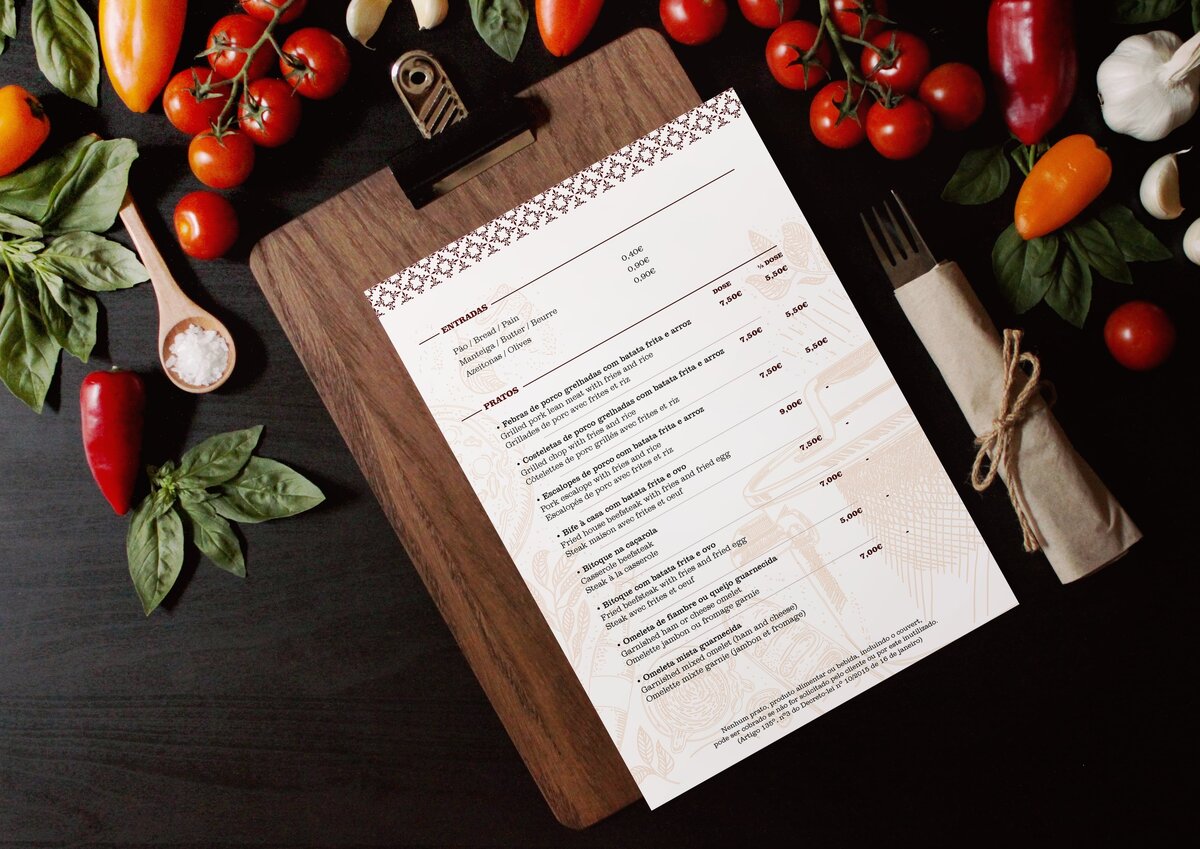 ENTRADAS
Pão / Bread / Pain 0,40€
Manteiga / Butter / Beurre 0,90€
Azeitonas / Olives 0,90€
PRATOS DOSE ½ DOSE
• Febras de porco grelhadas com batata frita e arroz 7,50€ 5,50€
Grilled pork lean meat with fries and rice
Grillades de porc avec frites et riz
• Costeletas de porco grelhadas com batata frita e arroz 7,50€ 5,50€
Grilled chop with fries and rice
Côtelettes de porc grillés avec frites et riz
• Escalopes de porco com batata frita e arroz 7,50€ 5,50€
Pork escalope with fries and rice
Escalopés de porc avec frites et riz
• Bife à casa com batata frita e ovo 9,00€ -
Fried house beefsteak with fries and fried egg
Steak maison avec frites et oeuf
• Bitoque na caçarola 7,50€ -
Casserole beefsteak
Steak à la casserole
• Bitoque com batata frita e ovo 7,00€ -
Fried beefsteak with fries and fried egg
Steak avec frites et oeuf
• Omeleta de fiambre ou queijo guarnecida 5,00€ -
Garnished ham or cheese omelet
Omelette jambon ou fromage garnie
• Omeleta mista guarnecida 7,00€ -
Garnished mixed omelet (ham and cheese)
Omelette mixte garnie (jambon et fromage)
Nenhum prato, produto alimentar ou bebida, incluindo o couvert,
pode ser cobrado se não for solicitado pelo cliente ou por este inutilizado.
(Artigo 135º, nº3 do Decreto-lei nº 10/2015 de 16 de janeiro)